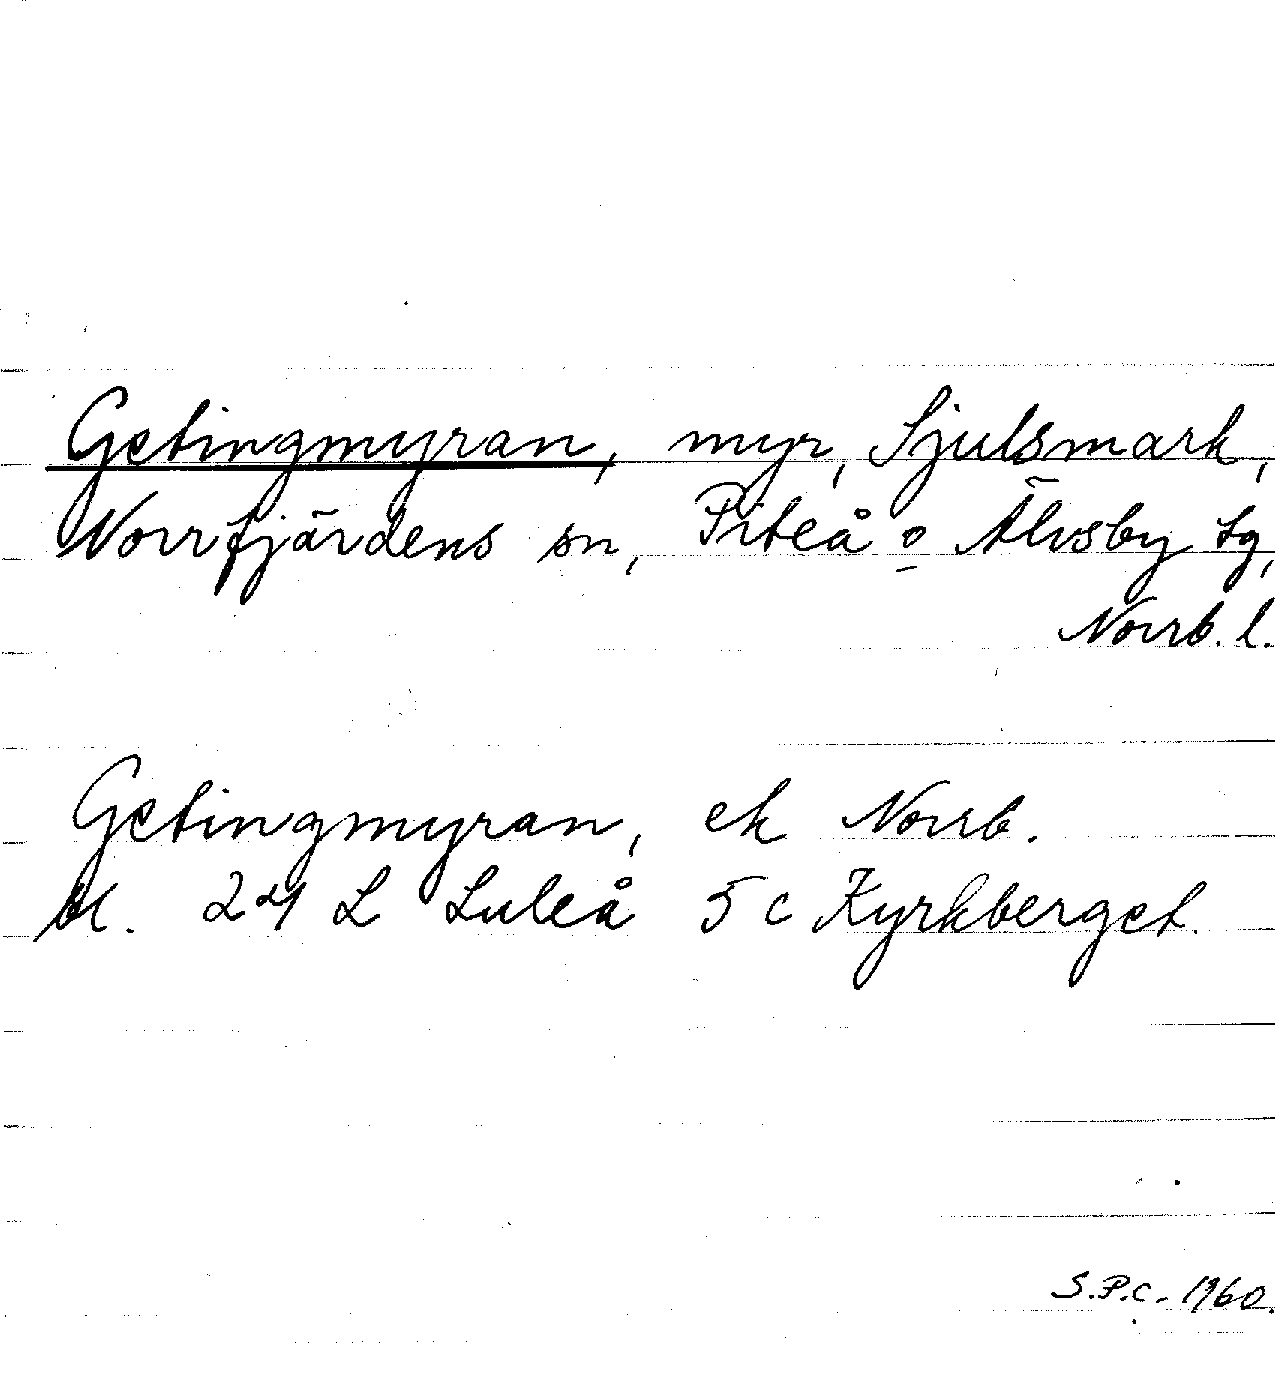 Getingmyran, myr, Sjulsmark,
Norrfjärdens sn, Piteå o Älvsby tg,
Norrb. l.
Getingmyran, ek Norrb.
bl. 24 L Luleå 5 c Kyrkberget.
S.P.C. 1960.